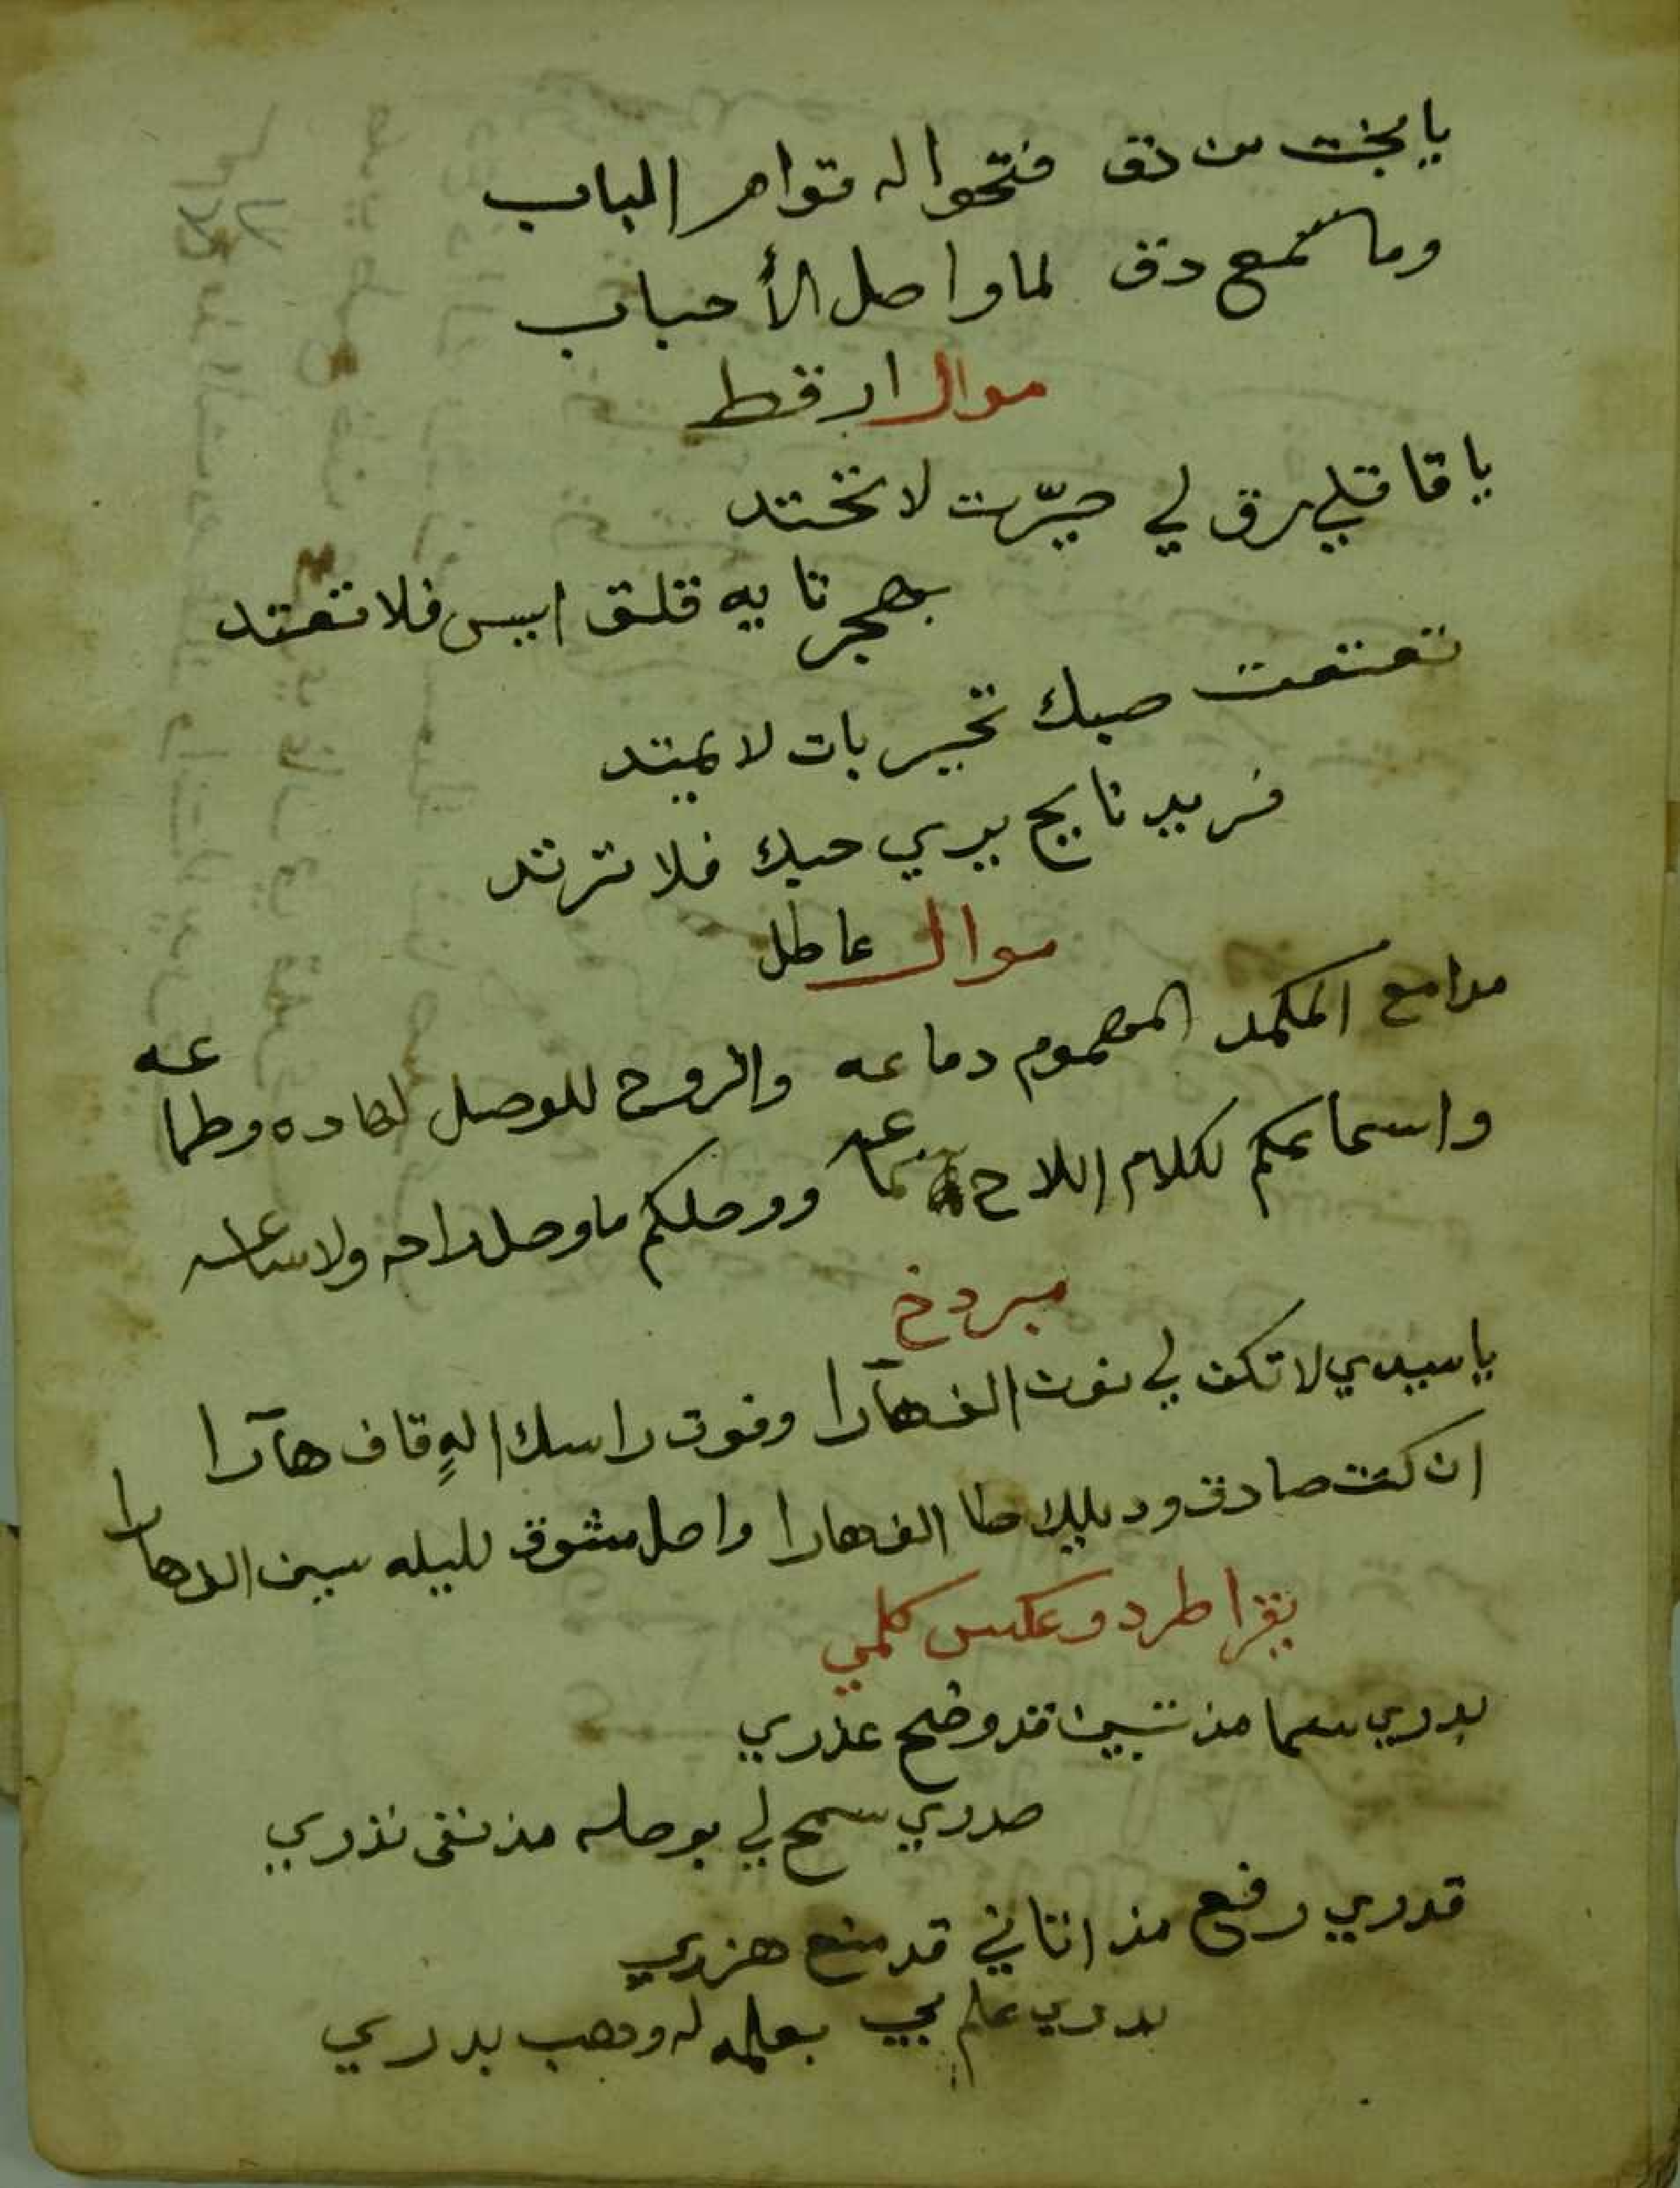 يا بخت من دق فتحوا له قواهر الباب
وما سمع دق لما واصل الأحباب
موال ارقط
يا قاتلي رق لي حيّرت لا تحتد
بهجر تايه قلق ايس فلا تعتد
تعنتت صبك تحير بات لا يمتد
فريد نايح يري حبك فلا ترتد
موال عاطل
مدامع المكمد المهموم دماعه والروح للوصل لهاده وطماعه
واسماعكم لكلام اللاح سماعه ووصلكم ما وصل راحه ولا ساعه
مبردخ
يا سيدي لا تكن لي نفرت الف هآرا وفوق راسك اله قاف هآرا
ان كنت صادق ودبليك طا الف هارا واصل مشوق لليله سين الف هارا
يقرا طرد وعكس كلمي
بدري سما مذ تبين قد وضح عذري
صدري سمح لي بوصله مذ نفى نذري
قدري رفع مذ اتاني قد منح هزري
بدري علم بي بعلمه له وهب بدري